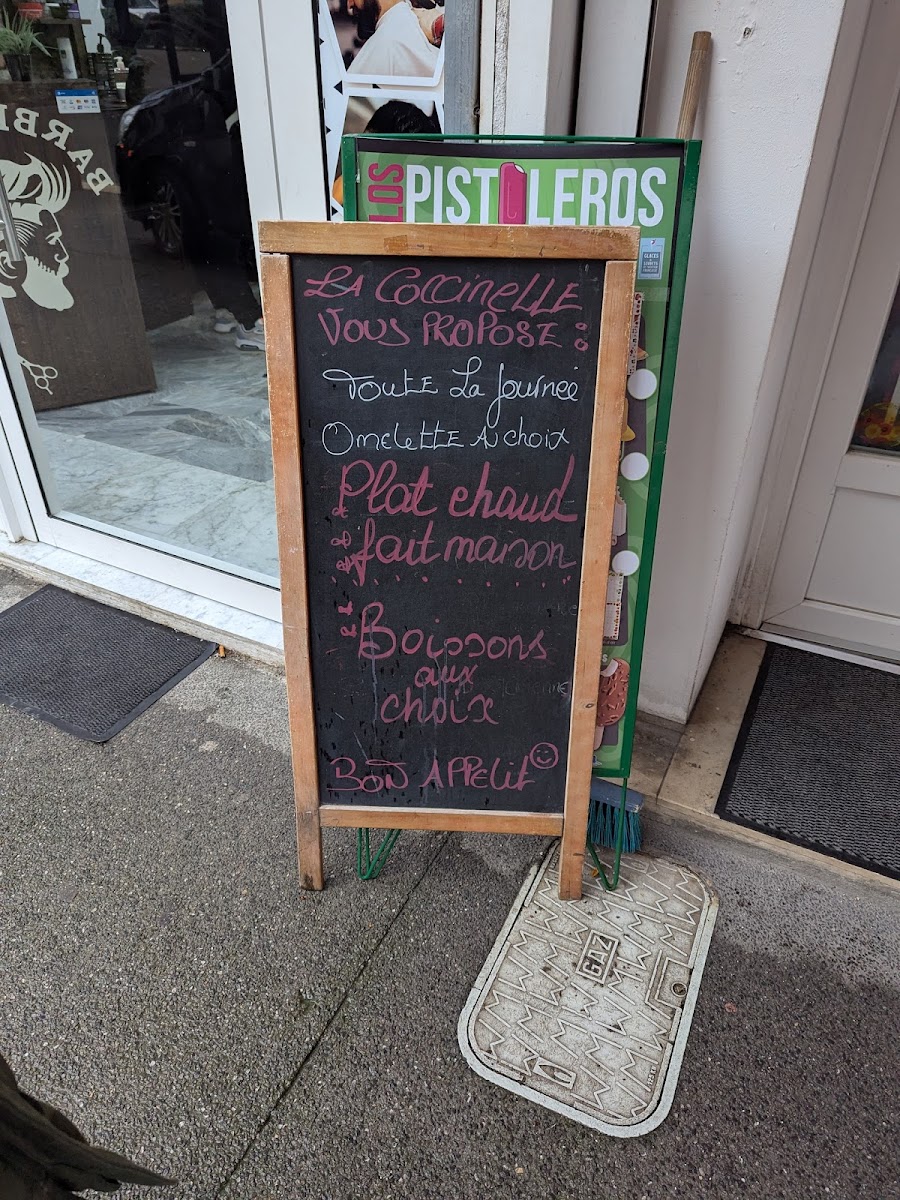 BARBI
LOS PISTOLEROS
LA COCCINELLE
VOUS PROPOSE :
TOUTE LA Journée
OMELETTE AU choix
Plat chaud
fait maison
Boissons
aux
choix
BON APPELIT
GAZ